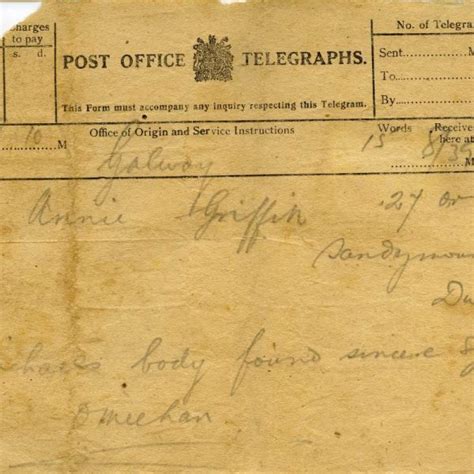 Charges to pay
s. d.
POST OFFICE TELEGRAPHS.
This Form must accompany any inquiry respecting this Telegram.
No. of Telegra
Sent
M
To
By
M
Office of Origin and Service Instructions
Words
Receive
here at
10
Galway
15
8/35
M
Annie Griffin 27
Sandymou
Du
body found sincere sy
O meehan